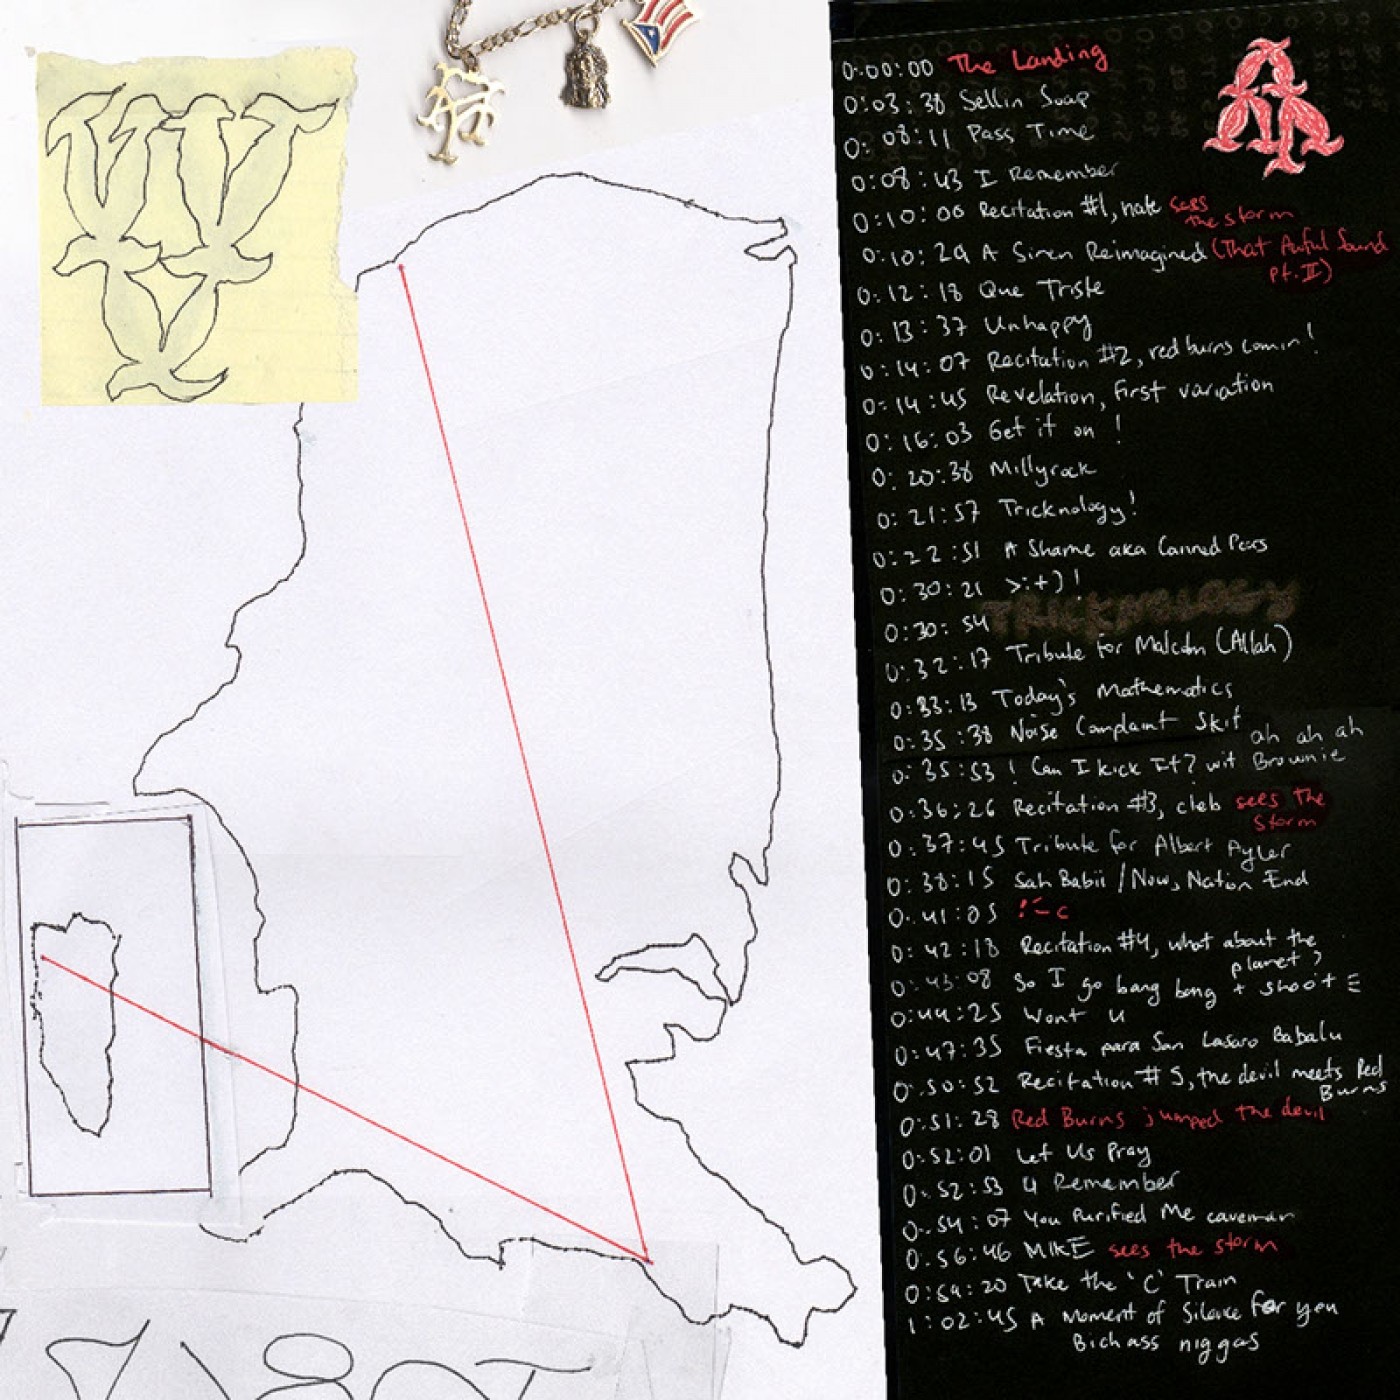 0:00:00 The Landing
0:03:38 Sellin Soap
0:08:11 Pass Time
0:08:43 I Remember
0:10:06 Recitation #1, nate sees
the storm
0:10:29 A Siren Reimagined (That Awful Sound
pt. II)
0:12:18 Que Triste
0:13:37 Unhappy
0:14:07 Recitation #2, red burns comin!
0:14:45 Revelation, First variation
0:16:03 Get it on!
0:20:38 Millyrock
0:21:57 Tricknology!
0:22:51 A Shame aka Canned Pears
0:30:21 >:+)!
0:30:54 TRICKNOLOGY
0:32:17 Tribute for Malcolm (Allah)
0:33:13 Today's Mathematics
0:35:38 Noise Complaint Skit
ah ah ah
0:35:53 ! Can I kick It? wit Brownie
0:36:26 Recitation #3, cleb sees the
storm
0:37:45 Tribute for Albert Ayler
0:38:15 Sah Babii / Now, Nation End
0:41:05
0:42:18 Recitation #4, what about the
planet?
0:43:08 So I go bang bang + shoot
0:44:25 Wont u
0:47:35 Fiesta para San Lasaro Babalu
0:50:52 Recitation #5, the devil meets Red
Burns
0:51:28 Red Burns jumped the devil
0:52:01 Let Us Pray
0:52:53 U Remember
0:54:07 You Purified Me caveman
0:56:46 MIKE sees the storm
0:59:20 Take the 'C' Train
1:02:45 A Moment of Silence for you
Bich ass niggas